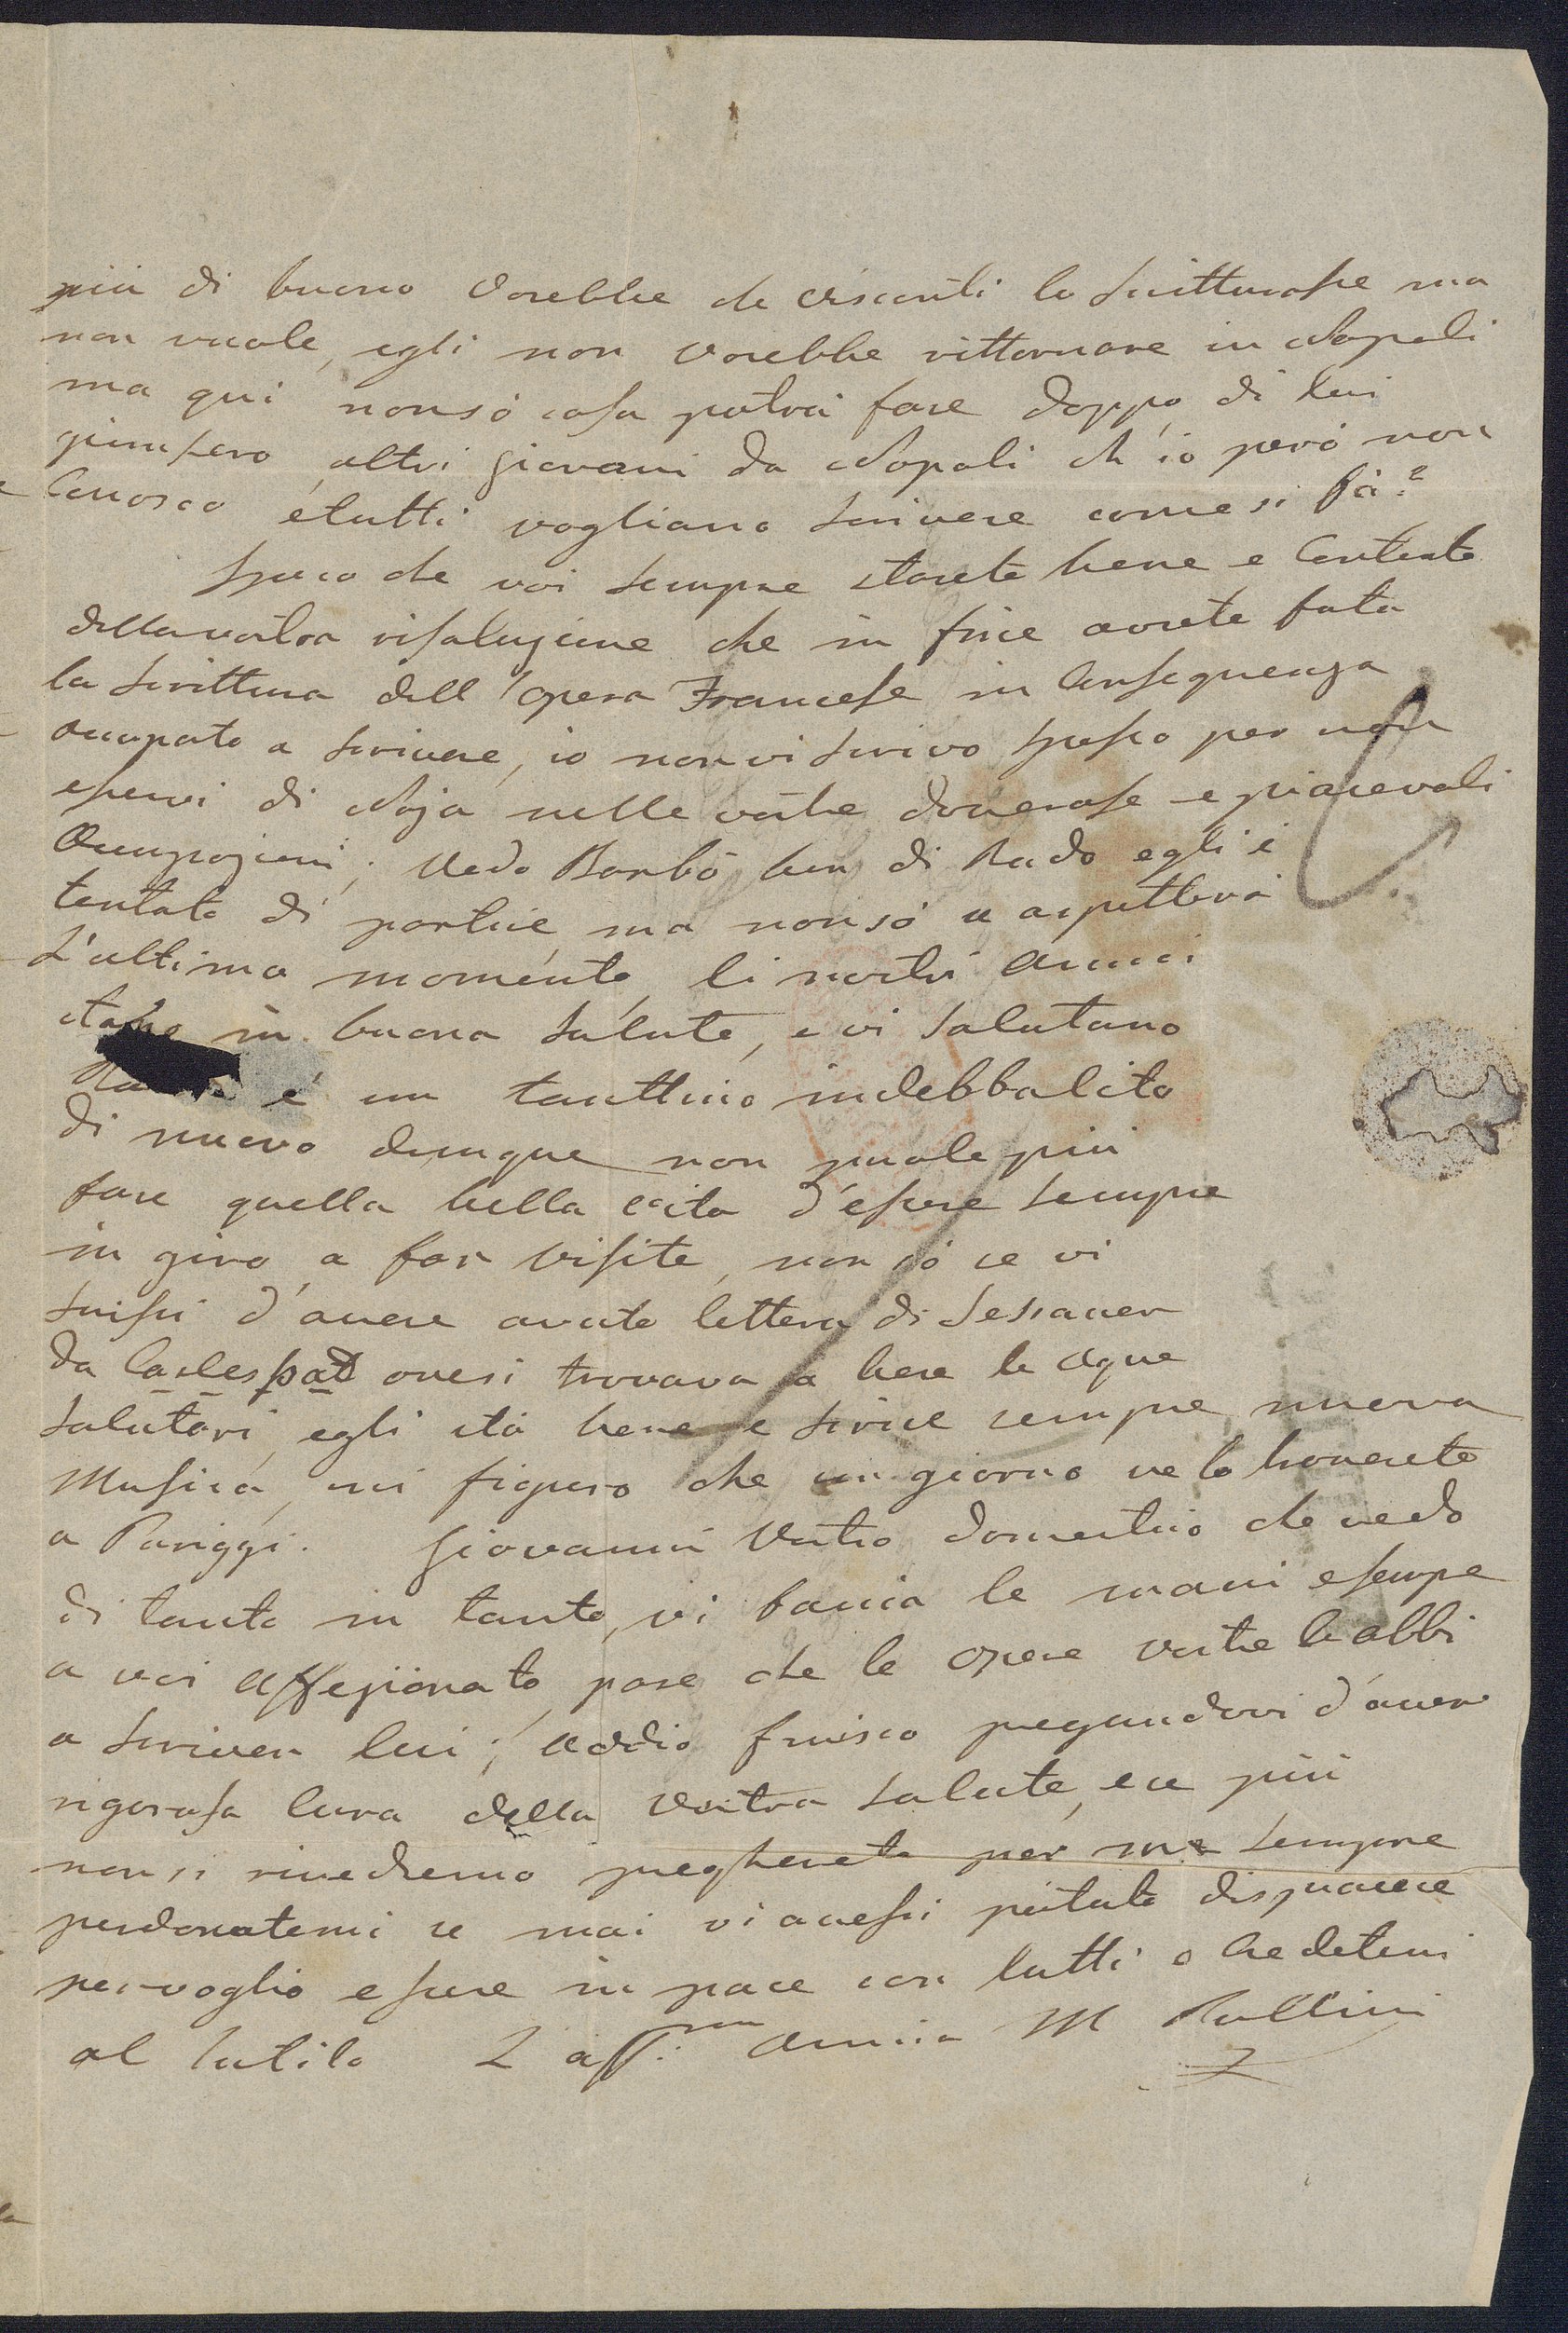 più di buono vorebbe che Visconti lo scritturasse ma
non vuole, egli non vorebbe rittornare in Napoli
ma qui non só cosa potrá fare doppo di lui
giunsero altri giovani da Napoli ch'io peró non
Conosco é tutti vogliano scrivere come si fá?
Spero che voi sempre starete bene e Contento
della vostra risoluzione che in fine avrete fata
la scrittura dell'opera Francese in Conseguenza
ocupato a scrivere, io non vi scrivo spesso per non
esservi di Noja nelle vostre doverose e piacevoli
Ocupazioni; Vedo Barbó ben di Rado egli é
tentato di partire ma non só se aspetterá
L'ultimo momento, li nostri Amici
stano in buona salute, e vi salutano
é un tanttino indebbolito
di nuovo dunque non puole piú
fare quella bella vita d'essere sempre
in giro a far visite, non só se vi
scrissi d'avere avuto lettera di Dessauer
da Carlesbad ove si trovava a bere le Aque
salutari, egli stá bene e scrive sempre nuova
Musica, mi figuro che un giorno ve lo troverete
a Pariggi. Giovanni Vostro domestico che vedo
di tanto in tanto, vi baccia le mani e sempre
a voi affezionato, pare che le opere vostre le abbi
a scriver lui; addio finisco pregandovi d'avere
rigorosa Cura della Vostra salute, e se più
non si rivedremo pregherete per me sempre
perdonatemi se mai vi avessi potuto dispiacere
per voglio essere in pace con tutti e Credetemi
al solito L'aff:ma Amica M Pollini